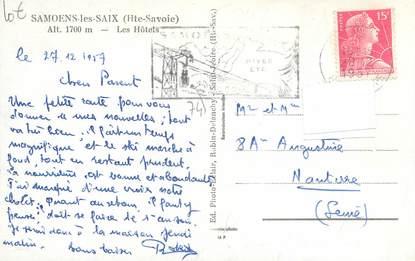 Lot
SAMOENS-les-SAIX (Hte-Savoie)
Alt. 1700 m — Les Hôtels
le 27.12.1957
Chers Parent
Une petite carte pour vous
donner de mes nouvelles, tout
va très beau. Il fait un temps
magnifique et le ski marche à
fond, tout en restant prudent.
La nourriture est bonne et abondante
J'ai marqué d'une croix notre
chalet. Quant au setan il faut y
penser, doit se faire de
Je serai donc à la maison jeudi
matin. bons baisers
74
HIVER
ETE
15F
Ed. Photo-Éclair, Robin-Delanchy - Saint-Jeoire (Hte-Sav.)
Mr et Mme
8A Augustine
Nanterre
(Seine)